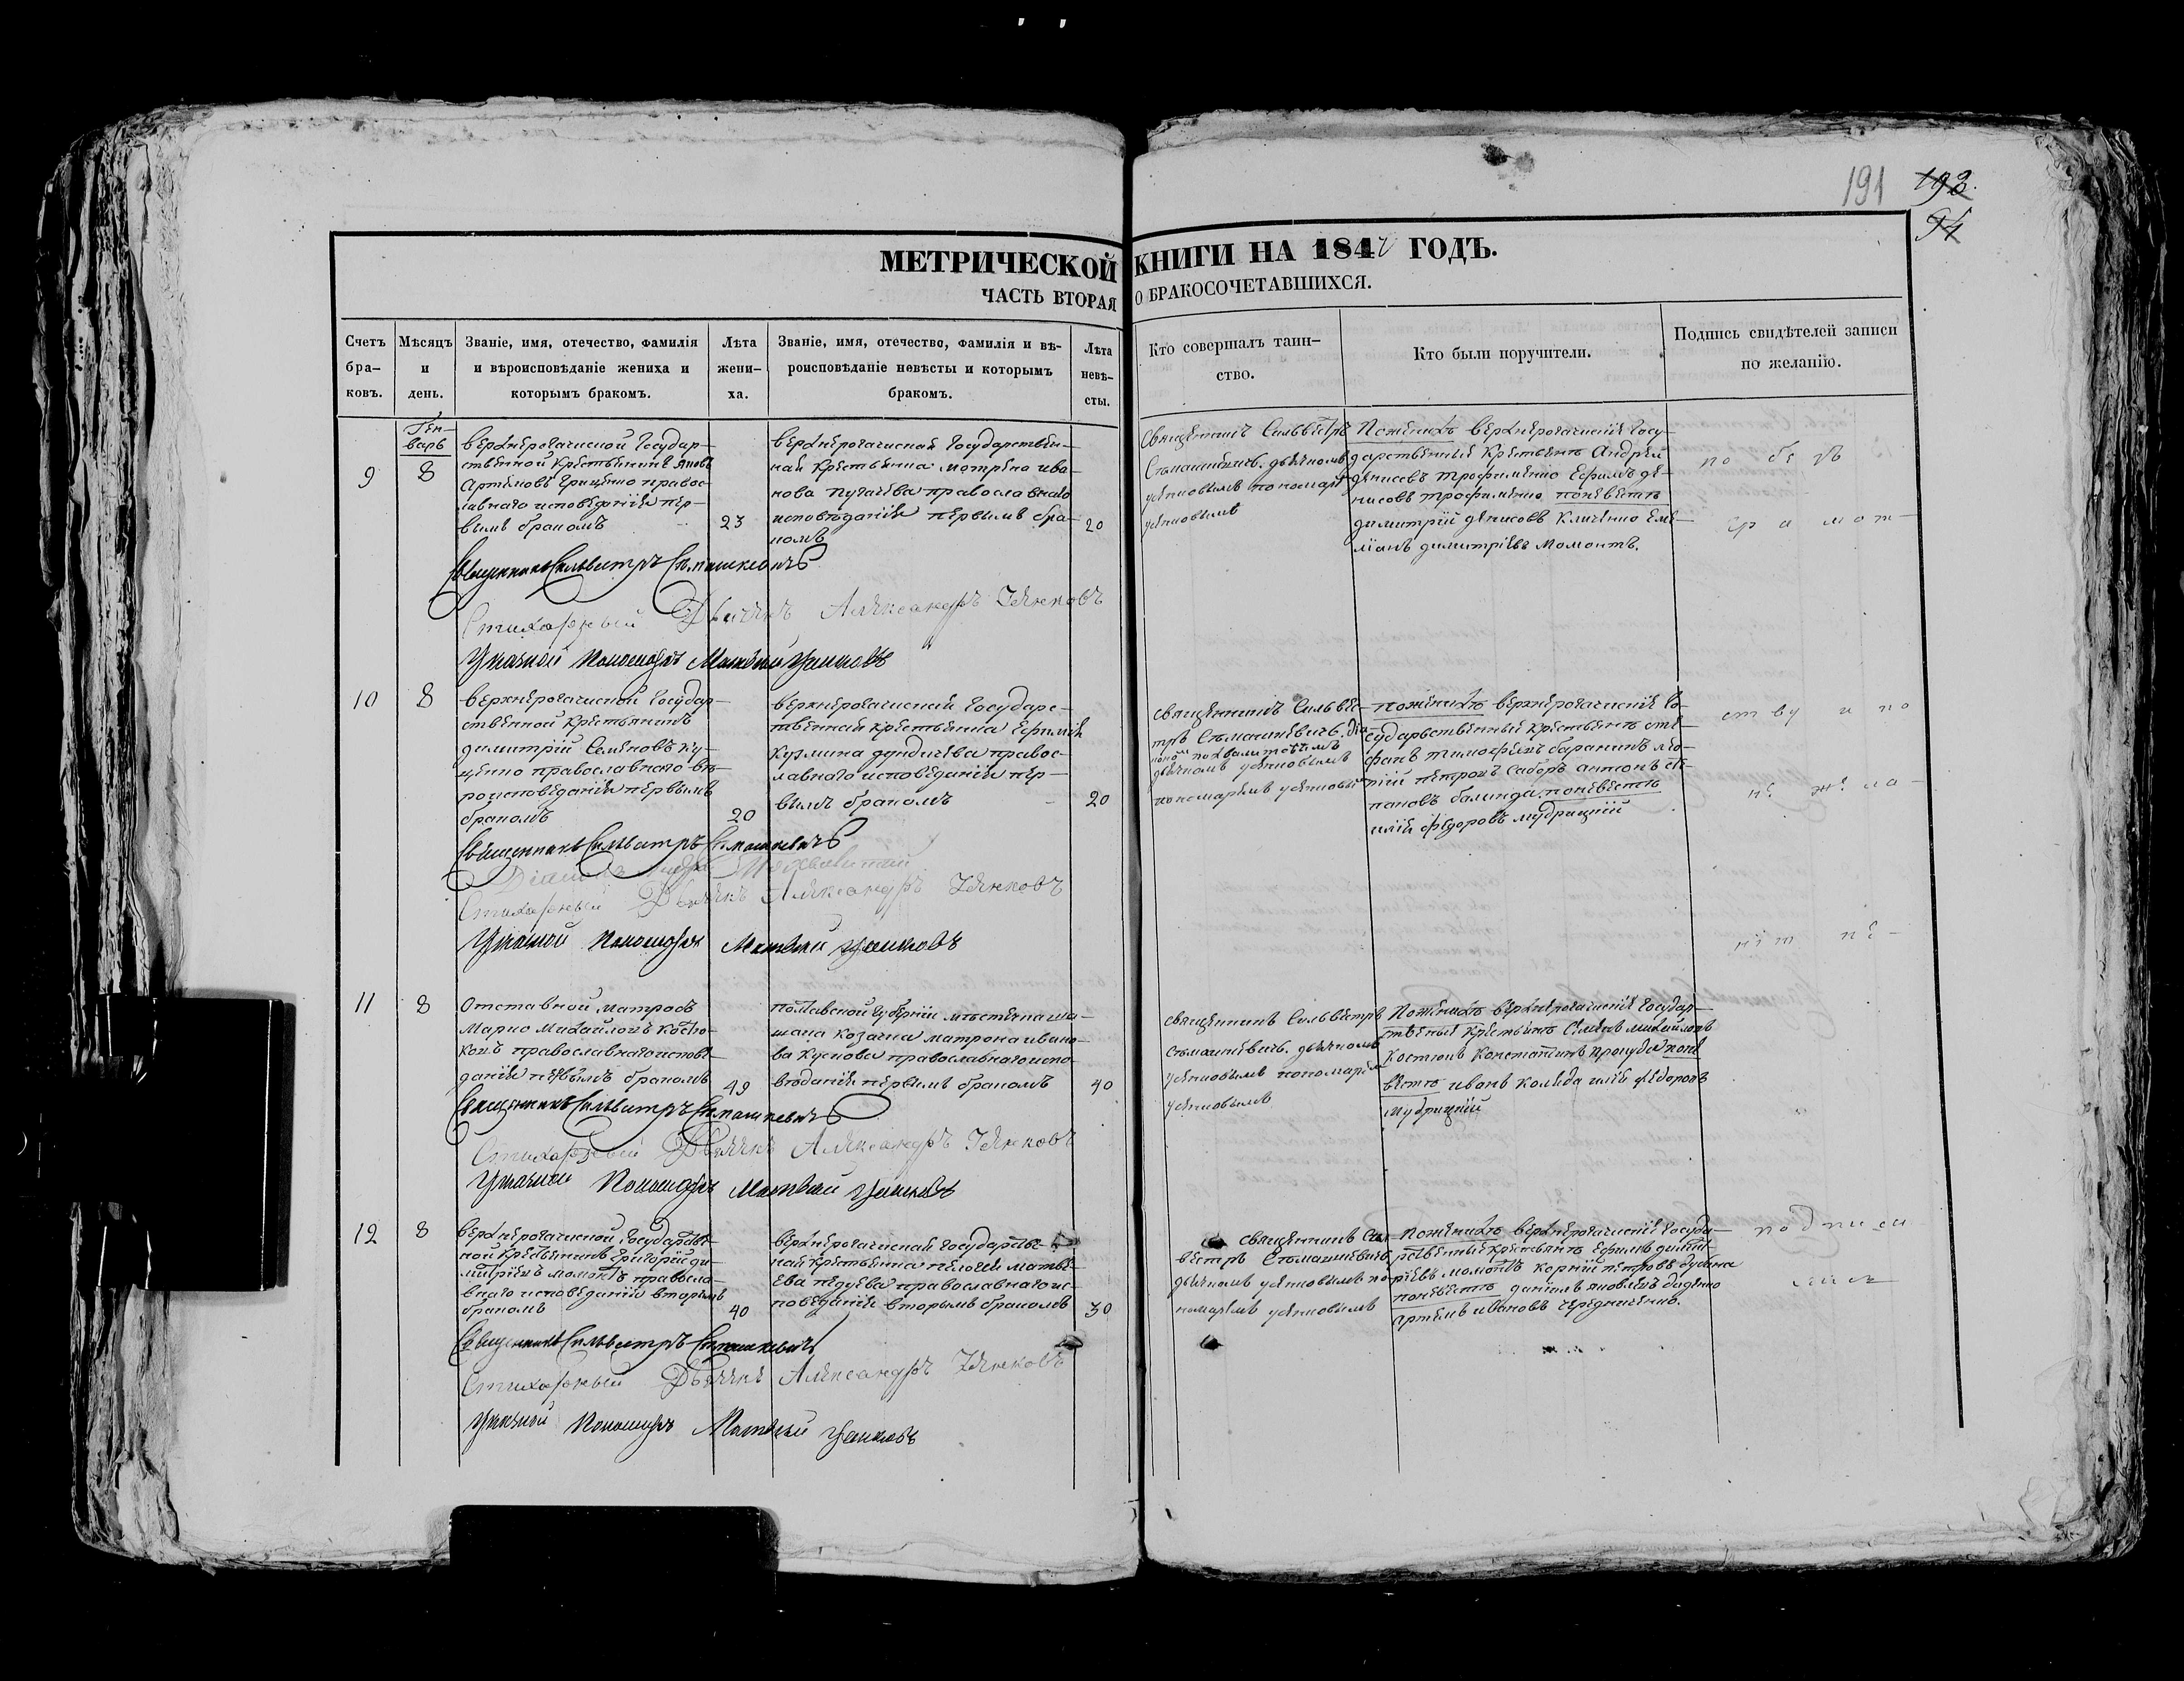 191 193.
94
МЕТРИЧЕСКОЙ КНИГИ НА 184 ГОДЪ.
ЧАСТЬ ВТОРАЯ О БРАКОСОЧЕТАВШИХСЯ.
Счетъ бра-ковъ.
Мѣсяцъ и день.
Званіе, имя, отечество, фамилія и вѣроисповѣданіе жениха и которымъ бракомъ.
Лѣта жени-ха.
Званіе, имя, отечество, фамилія и вѣ-роисповѣданіе невѣсты и которымъ бракомъ.
Лѣта невѣ-сты.
Кто совершалъ таин-ство.
Кто были поручители.
Подпись свидѣтелей записи по желанію.
Ген-
варь
9
8
верхнерогачиской Государ-
ственной Крестьянинъ Яковъ
Артемовъ Гриценко правос-
лавнаго исповеданія пер-
вымъ бракомъ
23
верхнерогачиская Государствен-
ная Крестьянка Матрена ива-
нова Пугачева православнаго
исповѣданія первымъ бра-
комъ
20
Священникъ Сильвестръ
Сѣмашкевичъ. дьячкомъ
пономар
Поженихѣ верхнерогачискіе Госу-
дарственные Крестьяне Андрей
денисовъ трофименко Ефимъ де-
нисовъ трофименко поневестѣ
димитрій денисовъ Кличенко Еме-
ліанъ димитріевъ Момонтъ.
по безъ
гра мот-
Священникъ Сильвестръ Сѣмашкевичъ
Стихарный Дьячекъ Александръ
Пономарь Матвей
10
8
верхнерогачиской Государ-
ственной Крестьянинъ
димитрій Семеновъ Ку-
ценко православнаго вѣ-
роисповеданія первымъ
бракомъ
20
верхнерогачиская Государс-
твенная крестьянка Ефимія
Кузмина дундичева правос-
лавнаго исповеданія пер-
вымъ бракомъ
20
священникъ Сильве-
тръ Сѣмашкевичъ. Діа-
дьячкомъ
пономаремъ
поженихѣ верхнерогачискіе Го-
сударственные Крестьяне сте-
фанъ тимофеевъ баранникъ
петровъ антонъ сте-
пановъ балинда поневестѣ
илія федоровъ мудрицкій
ству и по
не же ла
Священникъ Сильвестръ Сѣмашкевичъ
Діаконъ
Стихарный Дьячекъ Александръ
Пономарь Матвей
нію не-
11
8
Отставной матросъ
Марко Михайловъ Костю-
ковъ православнаго испове-
данія первымъ бракомъ
49
полтавской Губерніи мѣстечка
козачка матрона ивано-
ва православнаго испо-
вѣданія первымъ бракомъ
40
священникъ Сильвестръ
Сѣмашкевичъ. дьячкомъ
пономаремъ
Поженихѣ верхнерогачискіе Государ-
ственные Крестьяне Семенъ михайловъ
Костюкъ Константинъ поне
вестѣ иванъ колѣда илія федоровъ
мудрицкій
Священникъ Сильвестръ Сѣмашкевичъ
Стихарный Дьячекъ Александръ
Пономарь Матвей
12
8
верхнерогачиской Государстве-
ной Крестьянинъ Григорій ди-
митріевъ момонтъ правосла-
внаго исповеданія вторымъ
бракомъ
40
верхнерогачиская Государстве-
ная Крестьянка пелагея матве-
ева педуева православнаго ис-
поведанія вторымъ бракомъ
30
священникъ Сил-
вестръ Сѣмашкевичъ
дьячкомъ по-
номаремъ
Поженихѣ верхнерогачискіе Госуда-
рственные крестьяне Ефимъ димит-
ріевъ момонтъ Корній петровъ
поневестѣ даніилъ яковлевъ диденко
артемъ ивановъ чередниченко.
подпи са
лись
Священникъ Сильвестръ Сѣмашкевичъ
Стихарный Дьячекъ Александръ
Пономарь Матвей